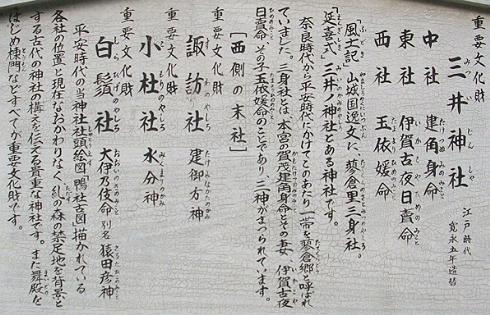 重要文化財
三井神社
江戸時代
寛永五年造替
中社 建角身命
東社 伊賀古夜日賣命
西社 玉依媛命
「風土記」山城国逸文に、蓼倉里三身社。
「延喜式」三井ノ神社とある神社です。
奈良時代から平安時代にかけてこのあたり一帯を蓼倉郷と呼ばれ
ていました。三身社とは、本宮の賀茂建角身命とその妻、伊賀古夜
日賣命、その子玉依媛命のことであり、三神がまつられています。
[西側の末社]
重要文化財
諏訪社 建御方神
重要文化財
小杜社 水分神
重要文化財
白鬚社 大伊乃伎命 別 猿田彦神
平安時代の当神社社頭絵図「鴨社古図」描かれている
各社の位置と現在なおかわりなく、糺の森の禁足地を背景と
する古代の神社の構えを伝える貴重な神社です。また舞殿を
はじめ棟門などすべてが重要文化財です。